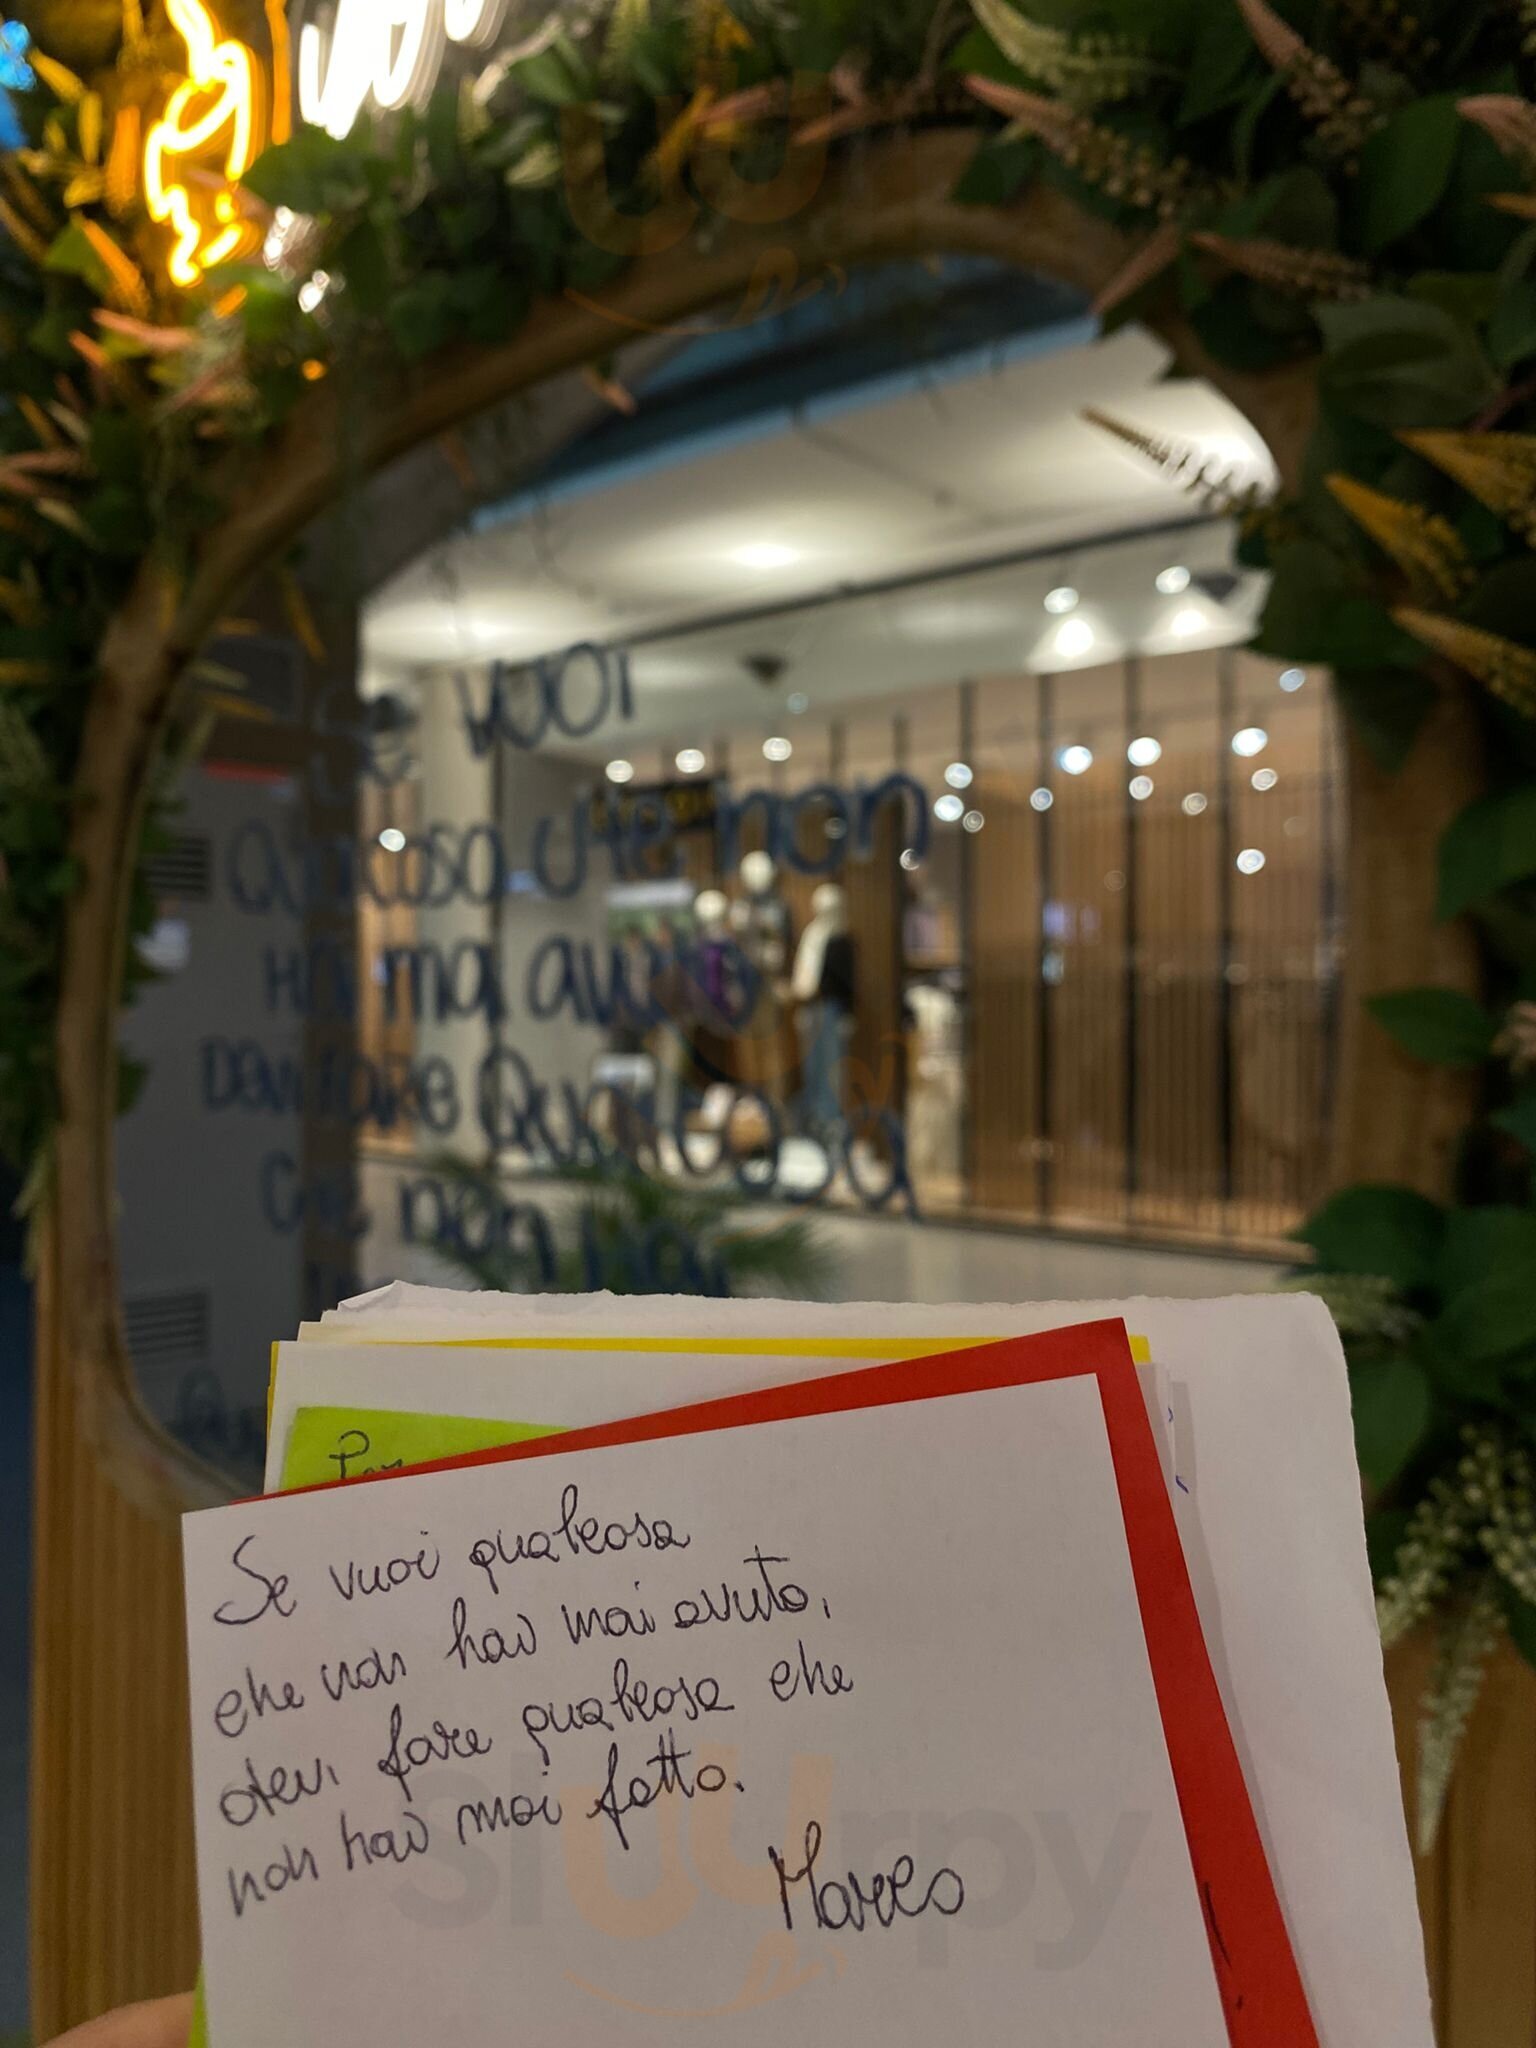 se vuoi
Qualcosa che non
Hai mai avuto
Devi fare Qualcosa
che non hai
Per
Se vuoi qualcosa
che non hai mai avuto,
devi fare qualcosa che
non hai mai fatto.
Marco
Sluurpy